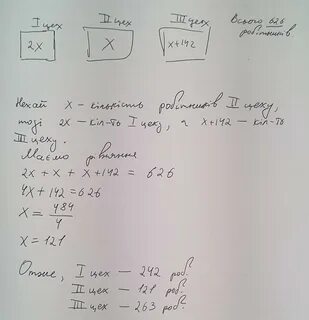 I цех II цех III цех Всього 626 робітників
2x x x+142
Нехай x – кількість робітників II цеху,
тоді 2x – кіл-ть I цеху, а x+142 – кіл-ть
III цеху.
Маємо рівняння
2x + x + x+142 = 626
4x + 142 = 626
x = 484/4
x = 121
Отже, I цех – 242 роб.
II цех – 121 роб.
III цех – 263 роб.